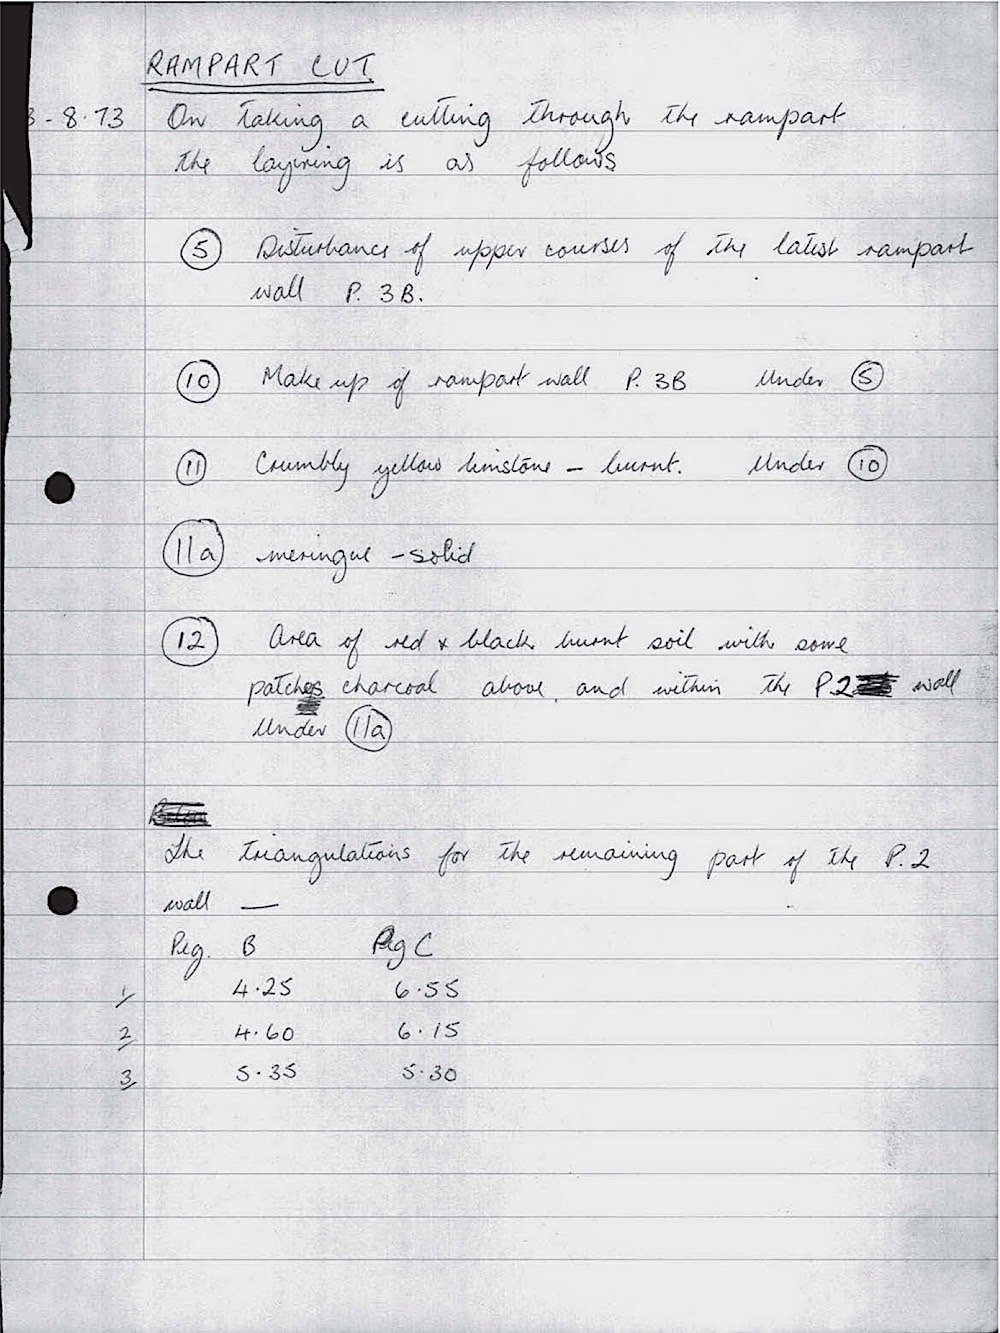 RAMPART CUT
3-8.73 On taking a cutting through the rampart
the layiring is as follows
5 Disturbance of upper courses of the latest rampart
wall P. 3B.
10 Make up of rampart wall P. 3B Under 5
11 Crumbly yellow limstone - burnt. Under 10
11a meringue - solid
12 Area of red & black burnt soil with some
patches charcoal above and within the P.2 wall
Under 11a
The triangulations for the remaining part of the P.2
wall —
Peg. B Peg C
1 4.25 6.55
2 4.60 6.15
3 5.35 5.30